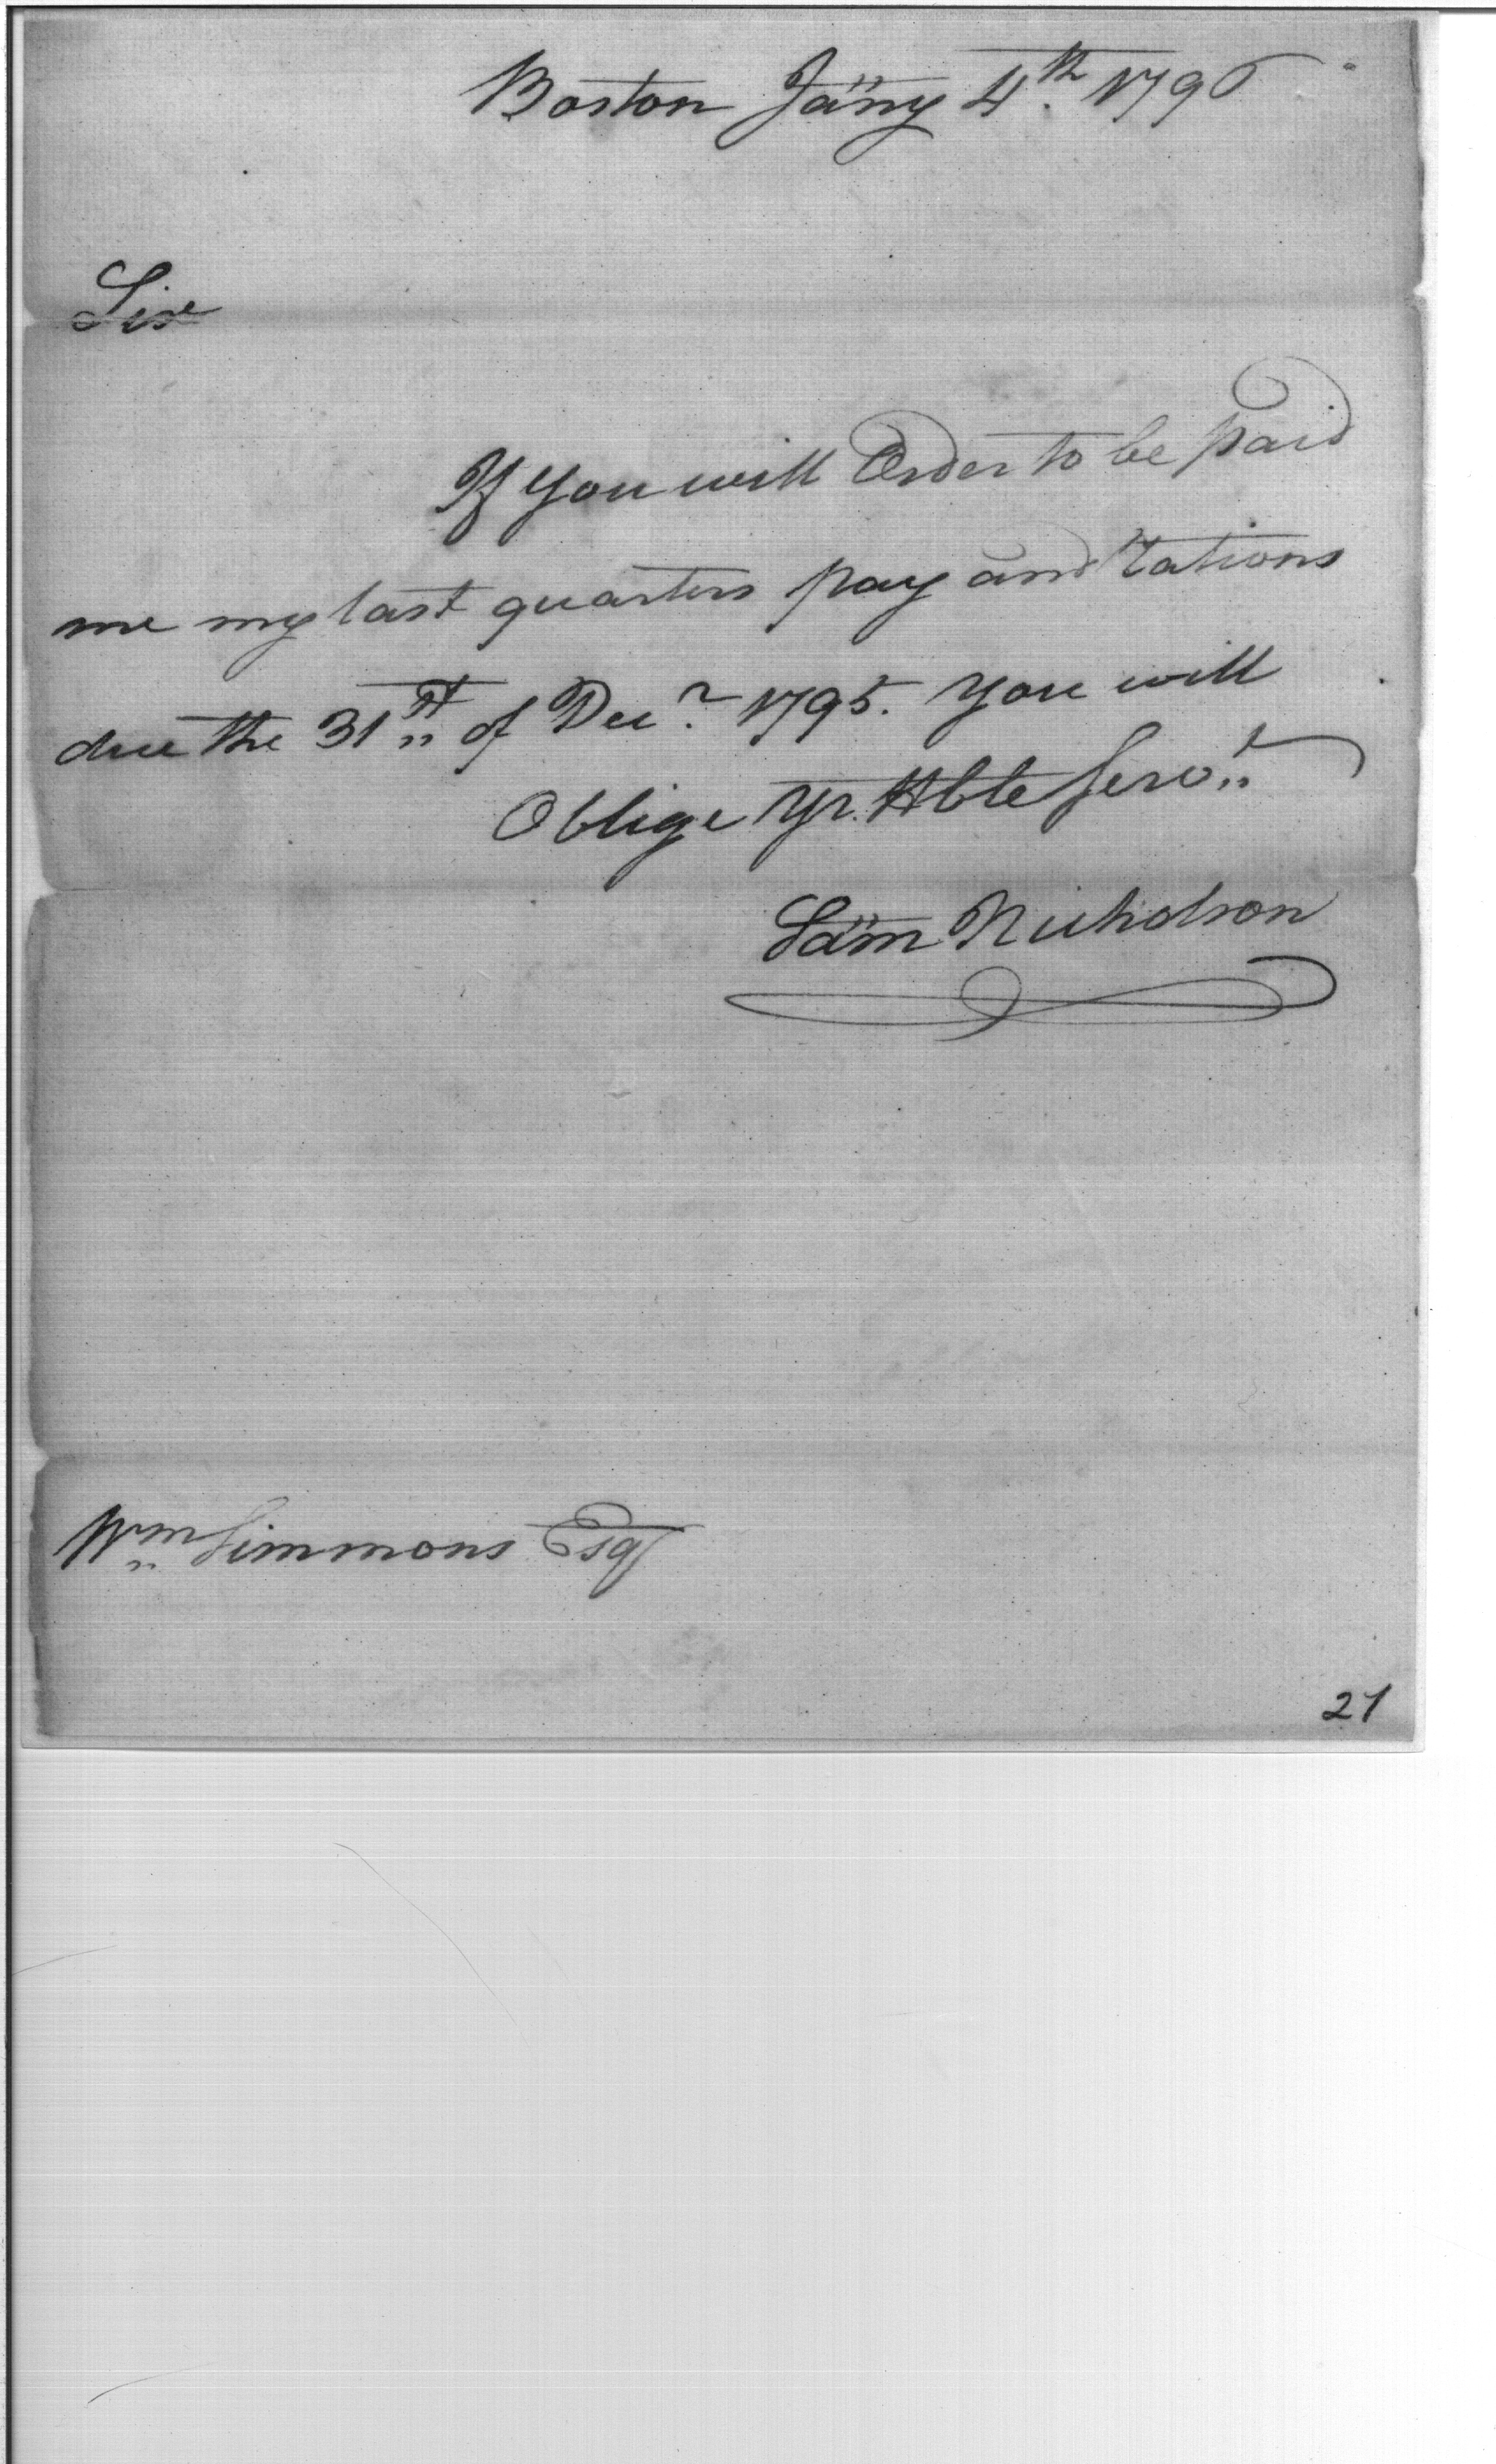 Boston Jany 4th. 1796
Sir
If you will Order to be paid
me my last quarters pay and rations
due the 31st of Decr. 1795. you will
Oblige Yr. Hble Servt
Sam Nicholson
Wm Simmons Esqr
21